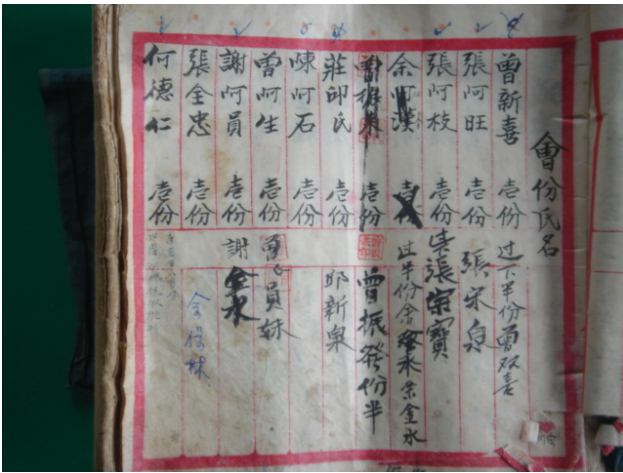 會份氏名
曾新喜 壹份 过下半份曾双喜
張阿旺 壹份 張宋泉
張阿枝 壹份 張宗寶
余阿漢 过半份余 永余金水
曾振 壹份 曾振發份半
莊邱氏 壹份 邱新泉
陳阿石 壹份
曾阿生 壹份 員妹
謝阿員 壹份 謝金水
張全忠 壹份
何德仁 壹份